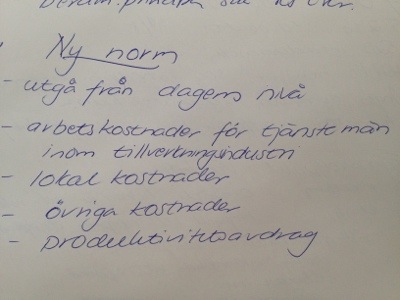 Ny norm
- utgå från dagens nivå
- arbetskostnader för tjänstemän
inom tillverkningsindustri
- lokal kostnader
- övriga kostnader
- produktivitetsavdrag